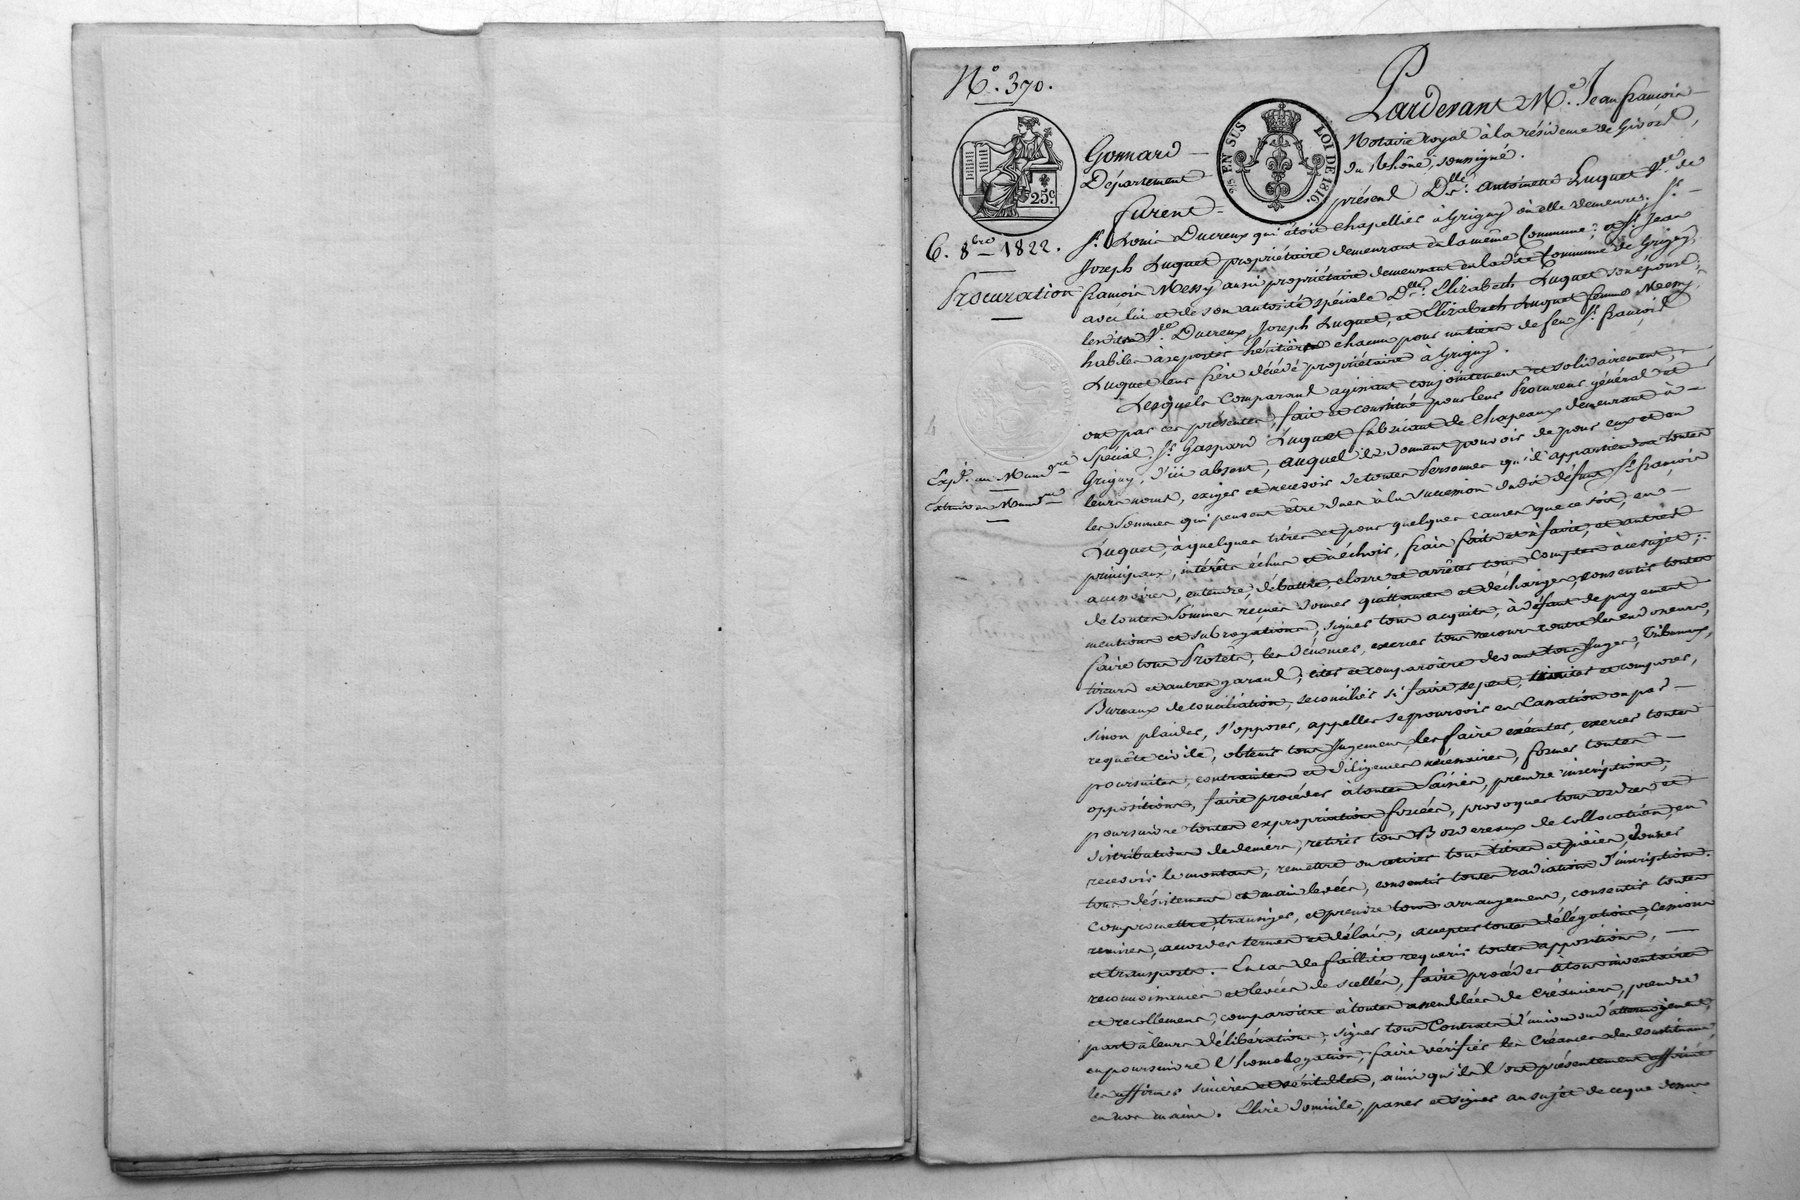 N.° 370.
25.c
25 EN SUS LOI DE 1816.
6. 8bre 1822.
Procuration
Expé. au Mand.re
Extrait au Mand.re
Pardevant M.e Jean françois
Gonnard Notaire royal à la résidence de Givors,
Département du Rhône, soussigné.
furent présens D.lle Antoinette Luquet V.ve de
S.r Louis Ducreux qui étoit chapellier à Grigny où elle demeure, S.r
Joseph Luquet propriétaire demeurant en la même Commune, et S.r Jean
françois Messy aussi propriétaire demeurant en ladite Commune de Grigny,
avec lui et de son autorité spéciale D.lle Elizabeth Luquet son épouse;
lesdits V.ve Ducreux, Joseph Luquet, et Elizabeth Luquet femme Messy,
habiles à se porter héritiers chacun pour un tiers de feu S.r françois
Luquet leur frère décédé propriétaire à Grigny.
Lesquels comparans agissant conjointement et solidairement,
ont par ces présentes, fait et constitué pour leur Procureur général et
Spécial, S.r Gaspard Luquet fabricant de chapeaux demeurant à
Grigny, d'ici absent, auquel ils donnent pouvoir de pour eux et en
leurs noms, exiger et recevoir de toutes Personnes qu'il appartiendra toutes
les sommes qui peuvent être dues à la succession dudit défunt S.r françois
Luquet, à quelques titres et pour quelques causes que ce soit, en
principaux, intérêts échus et à échoir, frais faits et à faire, et autres
accessoires, entendre, débattre, clorre et arrêter tous Comptes à ce sujet;
de toutes Sommes reçues donner quittances et décharges, consentir toutes
mentions et subrogations, signer tous acquits; à défaut de payement
faire tous Protêts, les dénoncer, exercer tous recours contre les endosseurs,
tireurs et autres garans; citer et comparoître devant tous Juges, Tribunaux,
Bureaux de conciliation, se concilier si faire se peut, traiter et composer,
sinon plaider, s'opposer, appeller, se pourvoir en Cassation ou par
requête civile, obtenir tous Jugemens, les faire exécuter, exercer toutes
poursuites, contraintes et diligences nécessaires, former toutes
oppositions, faire procéder à toutes Saisies, prendre inscriptions,
poursuivre toutes expropriations forcées, provoquer tous ordres et
distributions de deniers, retirer tous Bordereaux de collocation, en
recevoir le montant, remettre ou retirer tous titres et pièces, donner
tous désistemens et main levées, consentir toutes radiations d'inscriptions.
Compromettre, transiger, et prendre tous arrangemens, consentir toutes
remises, accorder termes et délais, accepter toutes délégations, Cessions
et transports. En cas de faillite requérir toutes appositions,
reconnoissances et levées de scellés, faire procéder à tous inventaires
et recollemens, comparoître à toutes assemblées de Créanciers, prendre
part à leurs délibérations, signer tous Contrats d'union ou d'attermoyement,
en poursuivre l'homologation, faire vérifier les Créances des Constituans,
les affirmer sincères et véritables, ainsi qu'ils l'ont présentement affirmé
en nos mains. Elire domicile, passer et signer au sujet de ce que dessus